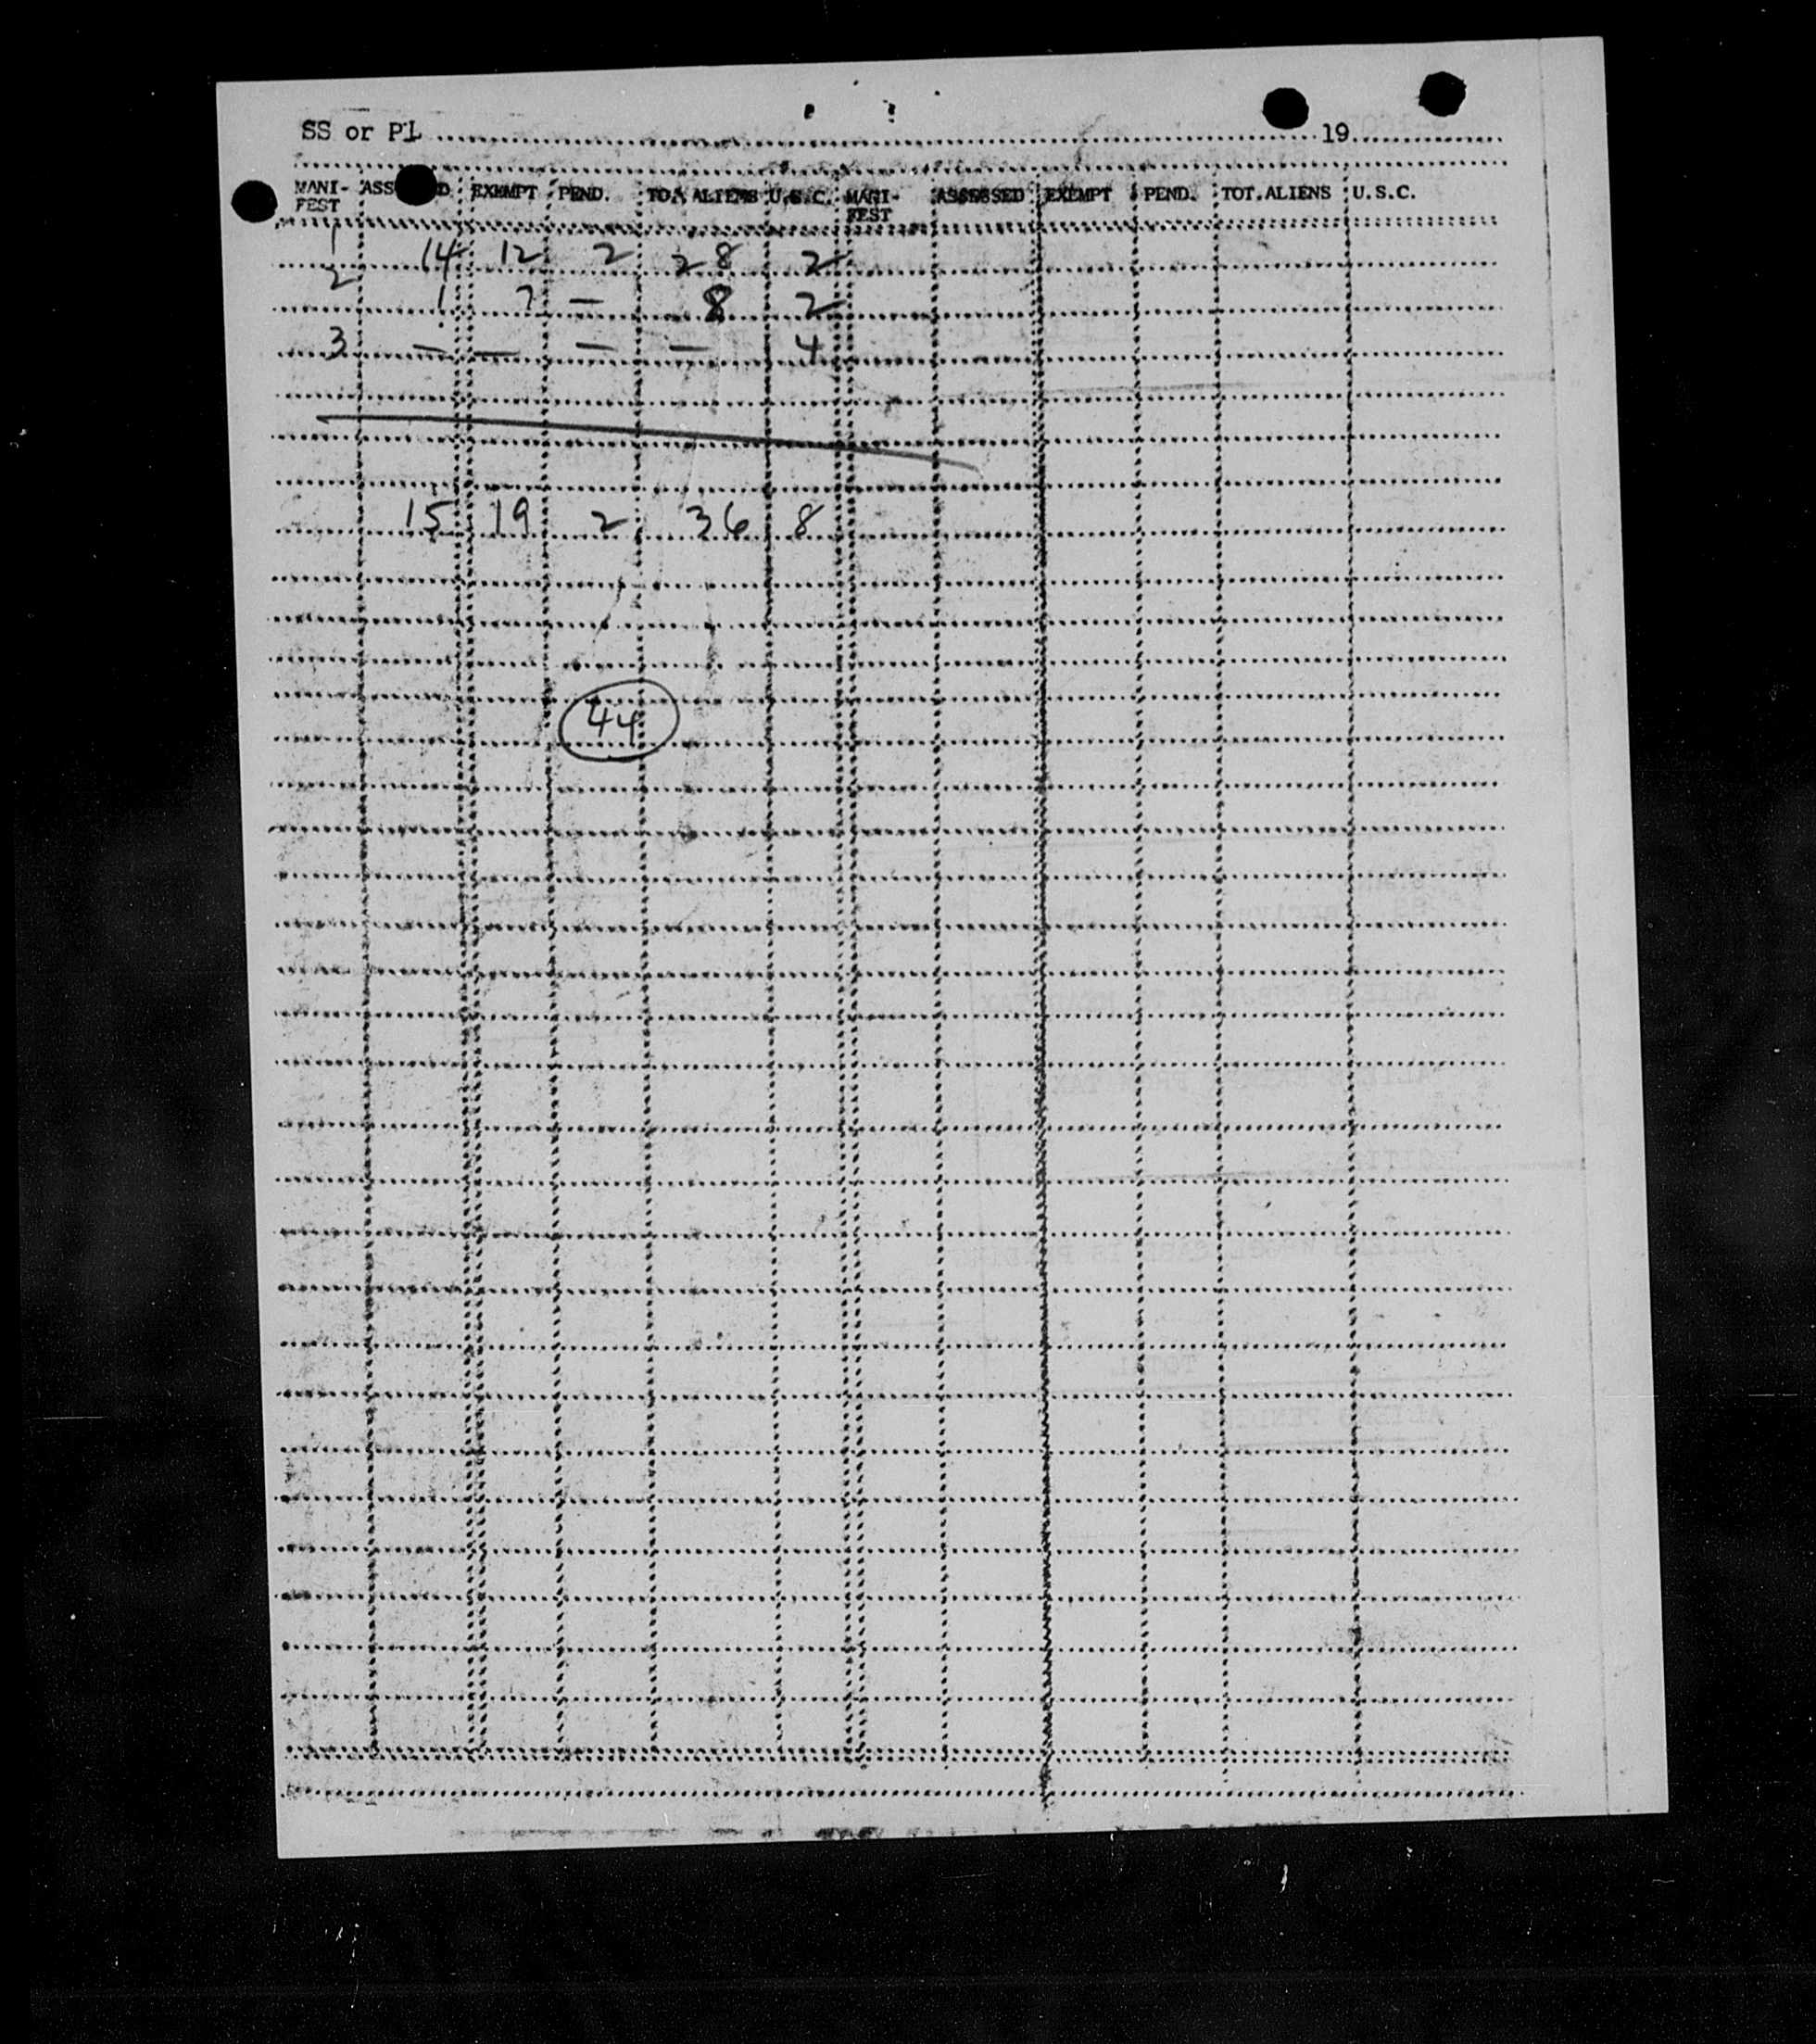 SS or PL 19
MANI- FEST ASS D EXEMPT PEND. TOT. ALIENS U.S.C. MANI- FEST ASSESSED EXEMPT PEND. TOT. ALIENS U.S.C.
1 14 12 2 28 2
2 1 7 — 8 2
3 — — — — 4
15 19 2 36 8
44